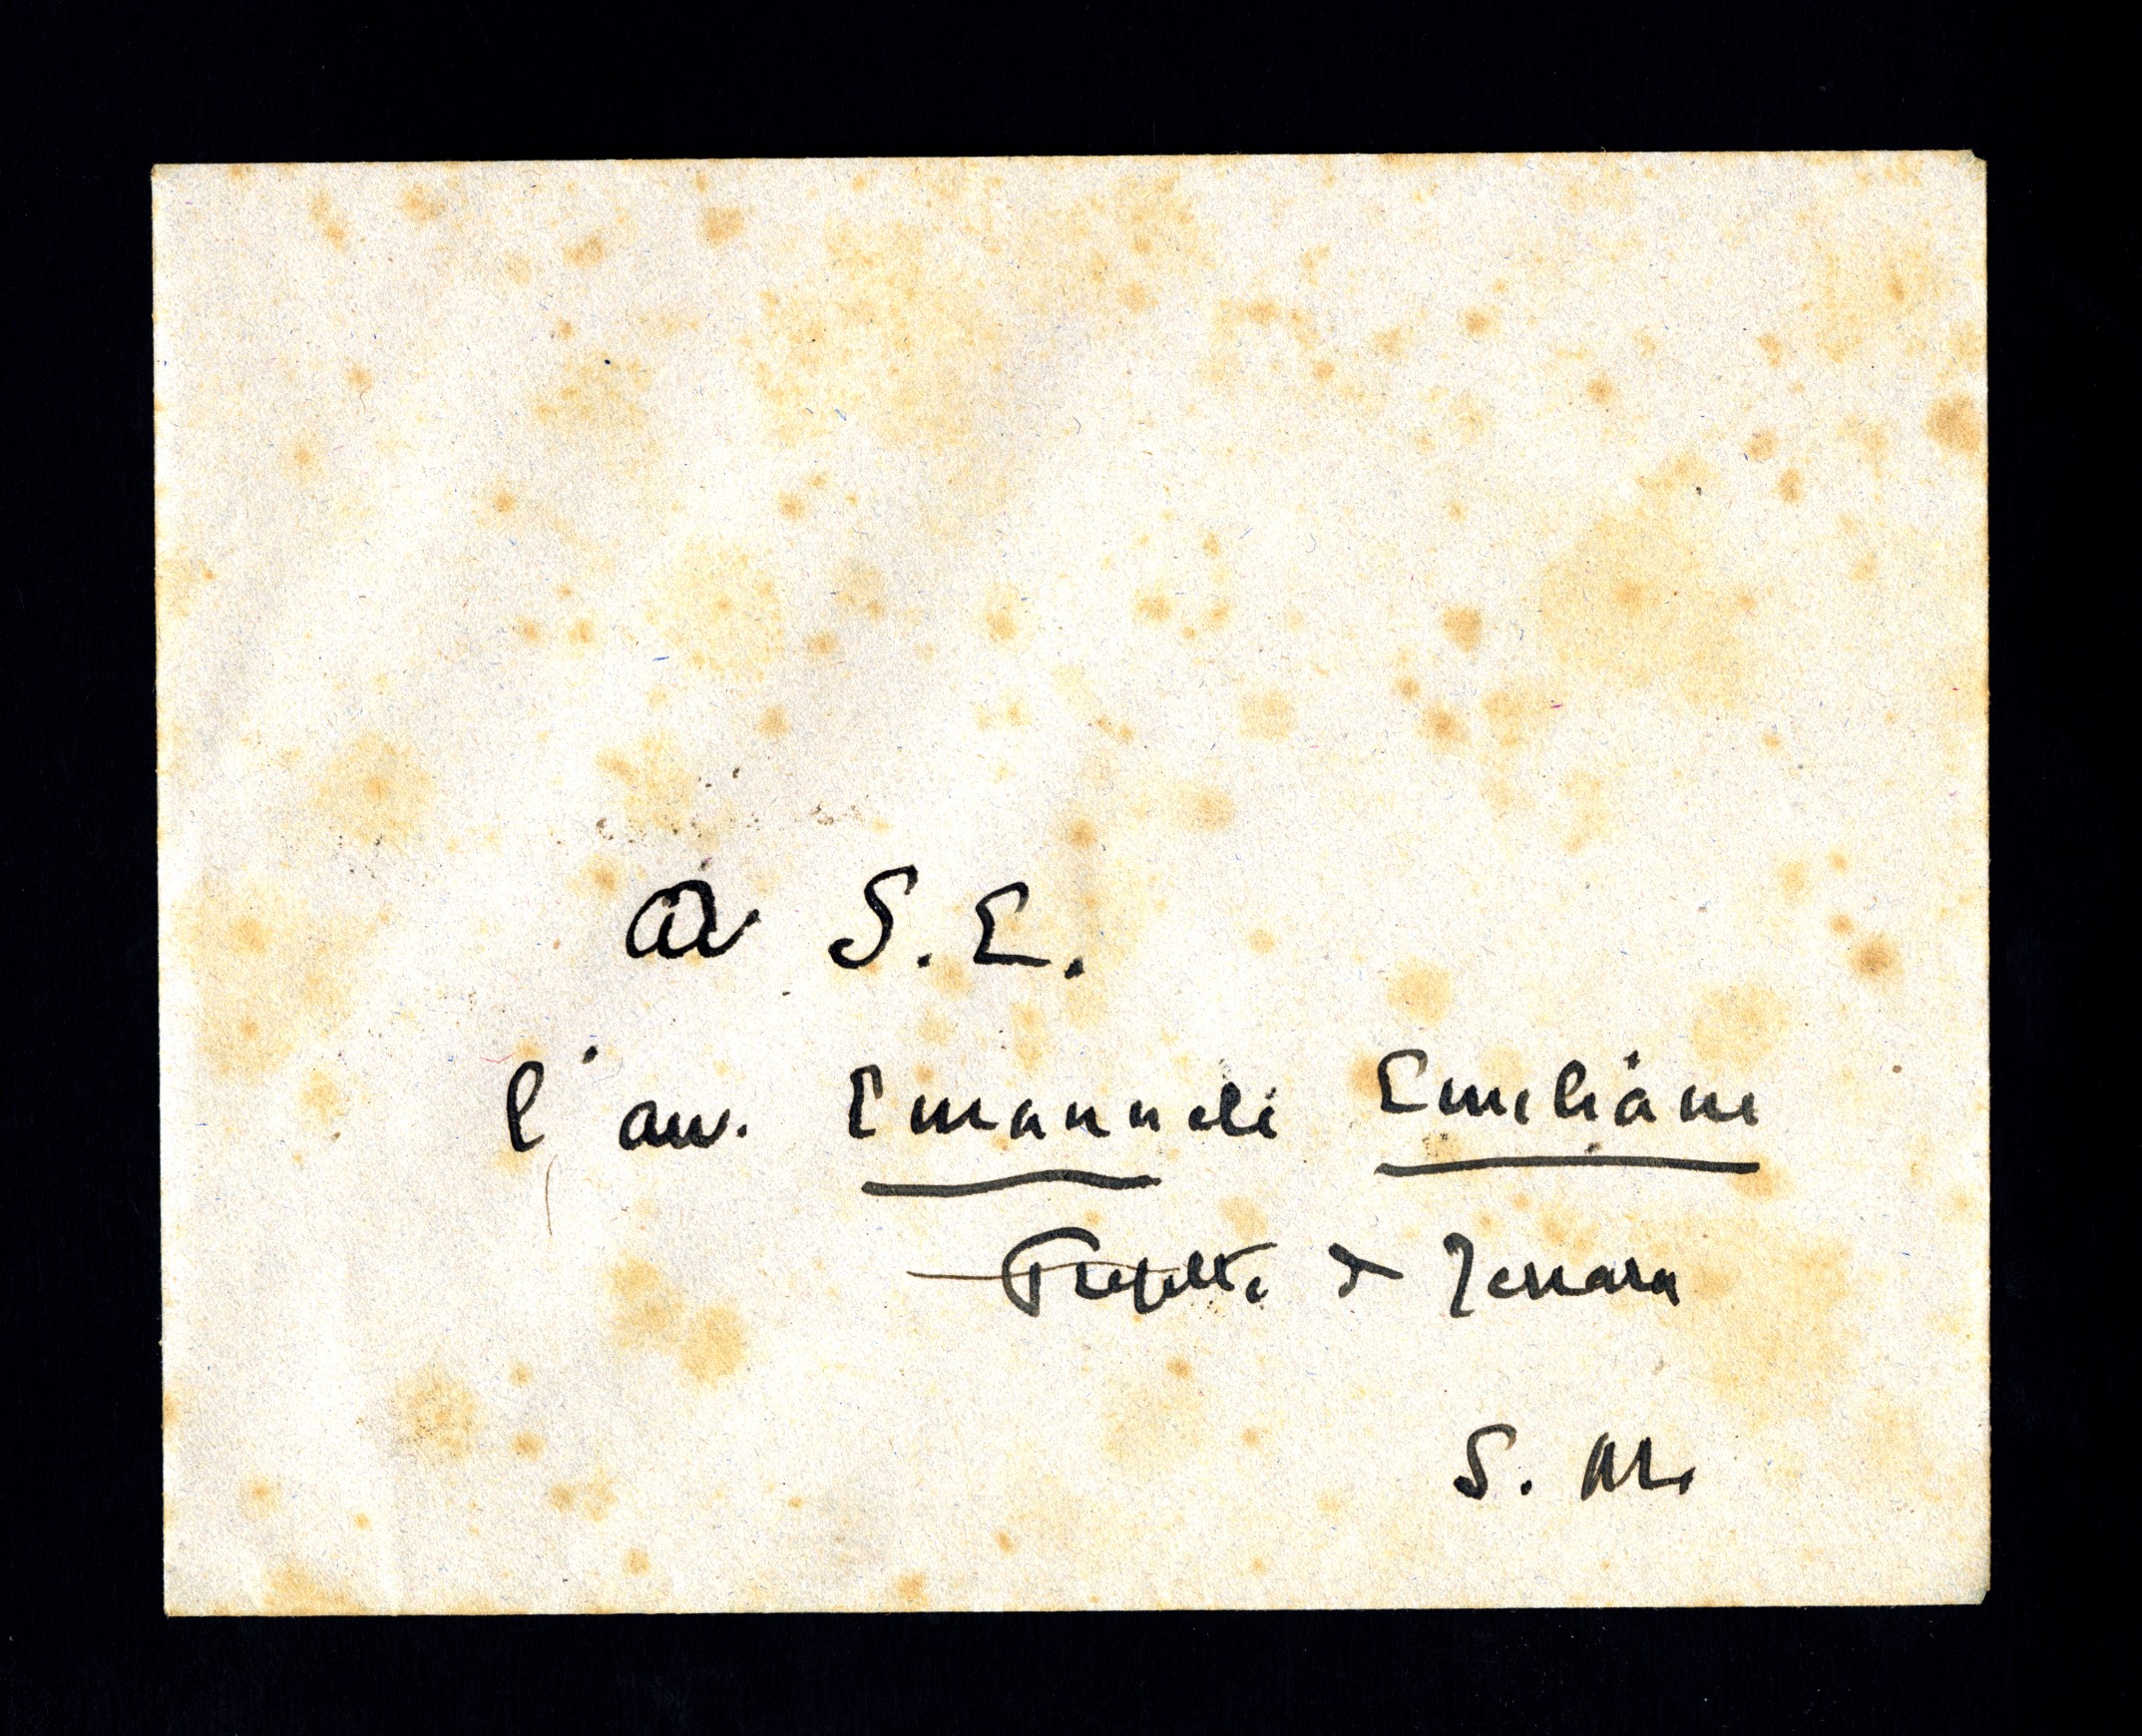 A S. E.
l'avv. Emanuele Emiliani
Prefetto di Ferrara
S. M.